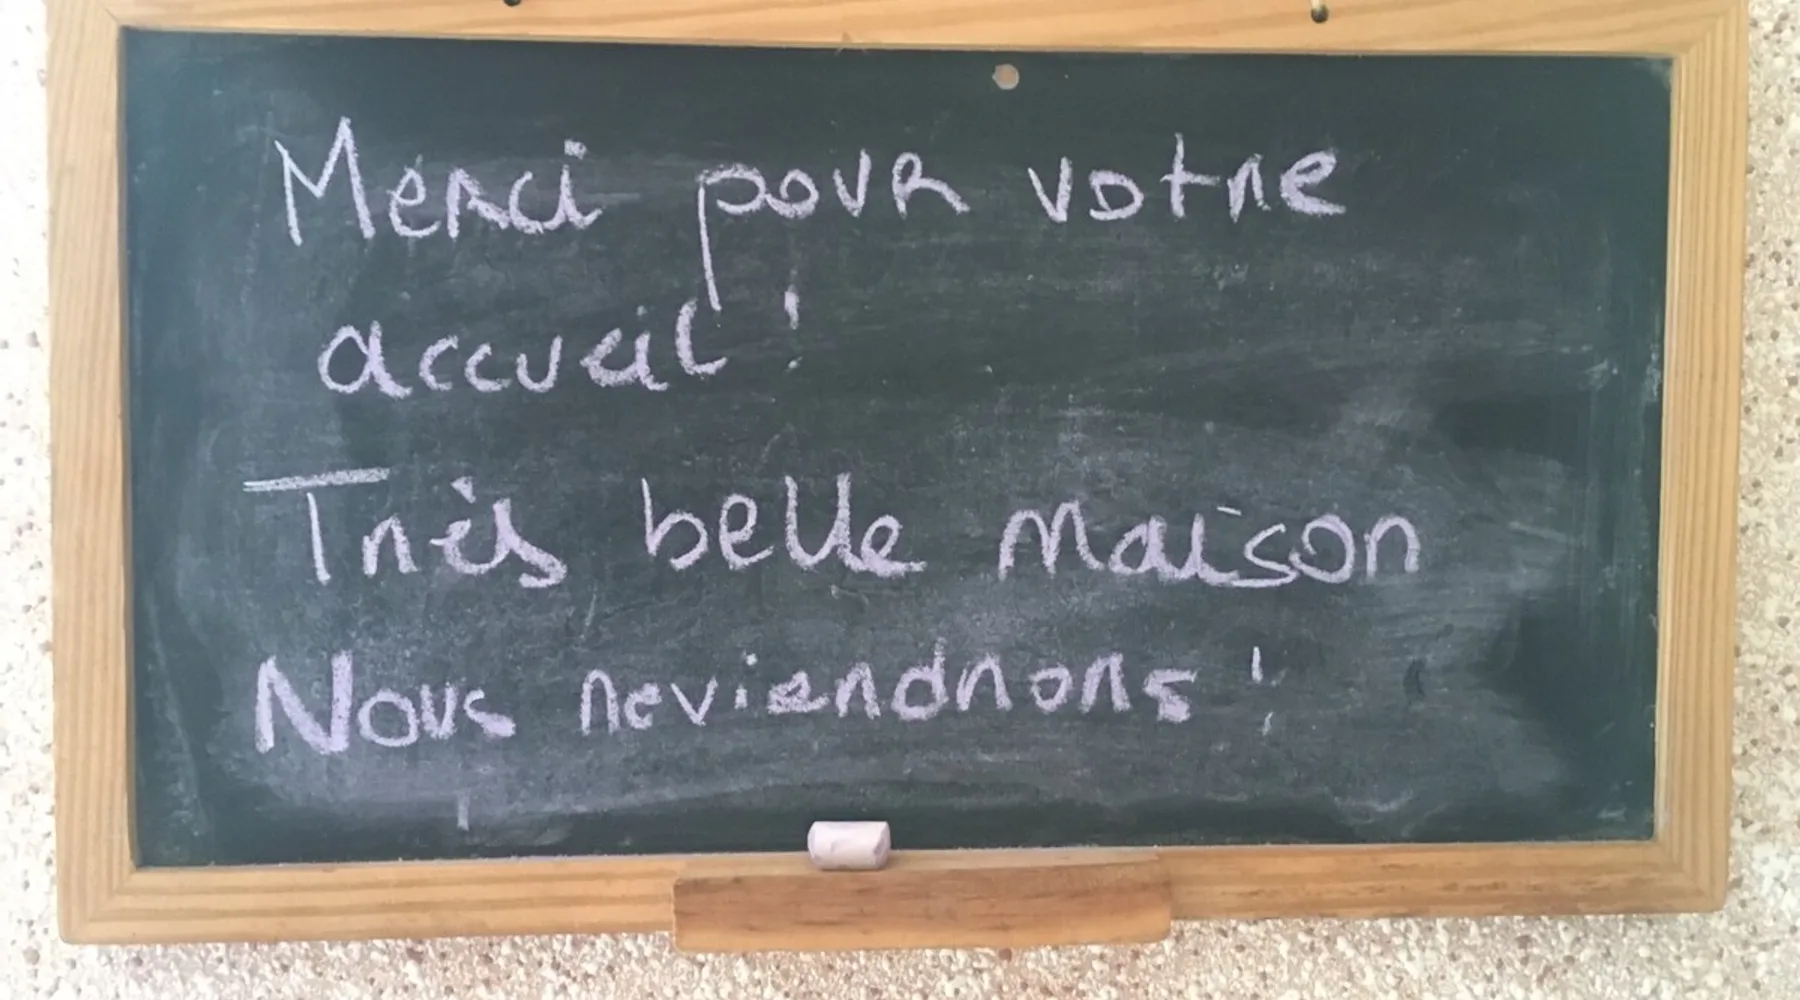 Merci pour votre
accueil !
Très belle maison
Nous reviendrons !